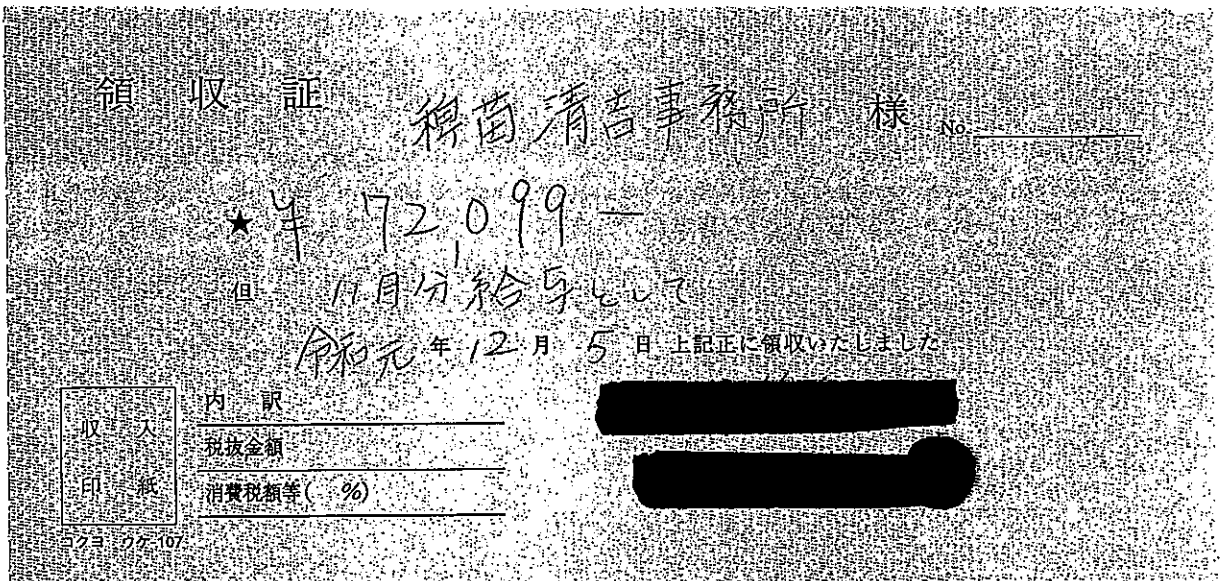 領収証
稗苗清吉事務所 様 No.
★ ¥ 72,099—
但 11月分給与として
令和元年12月5日 上記正に領収いたしました
内訳
税抜金額
消費税額等( %)
収入
印紙
コクヨ ウケ-107